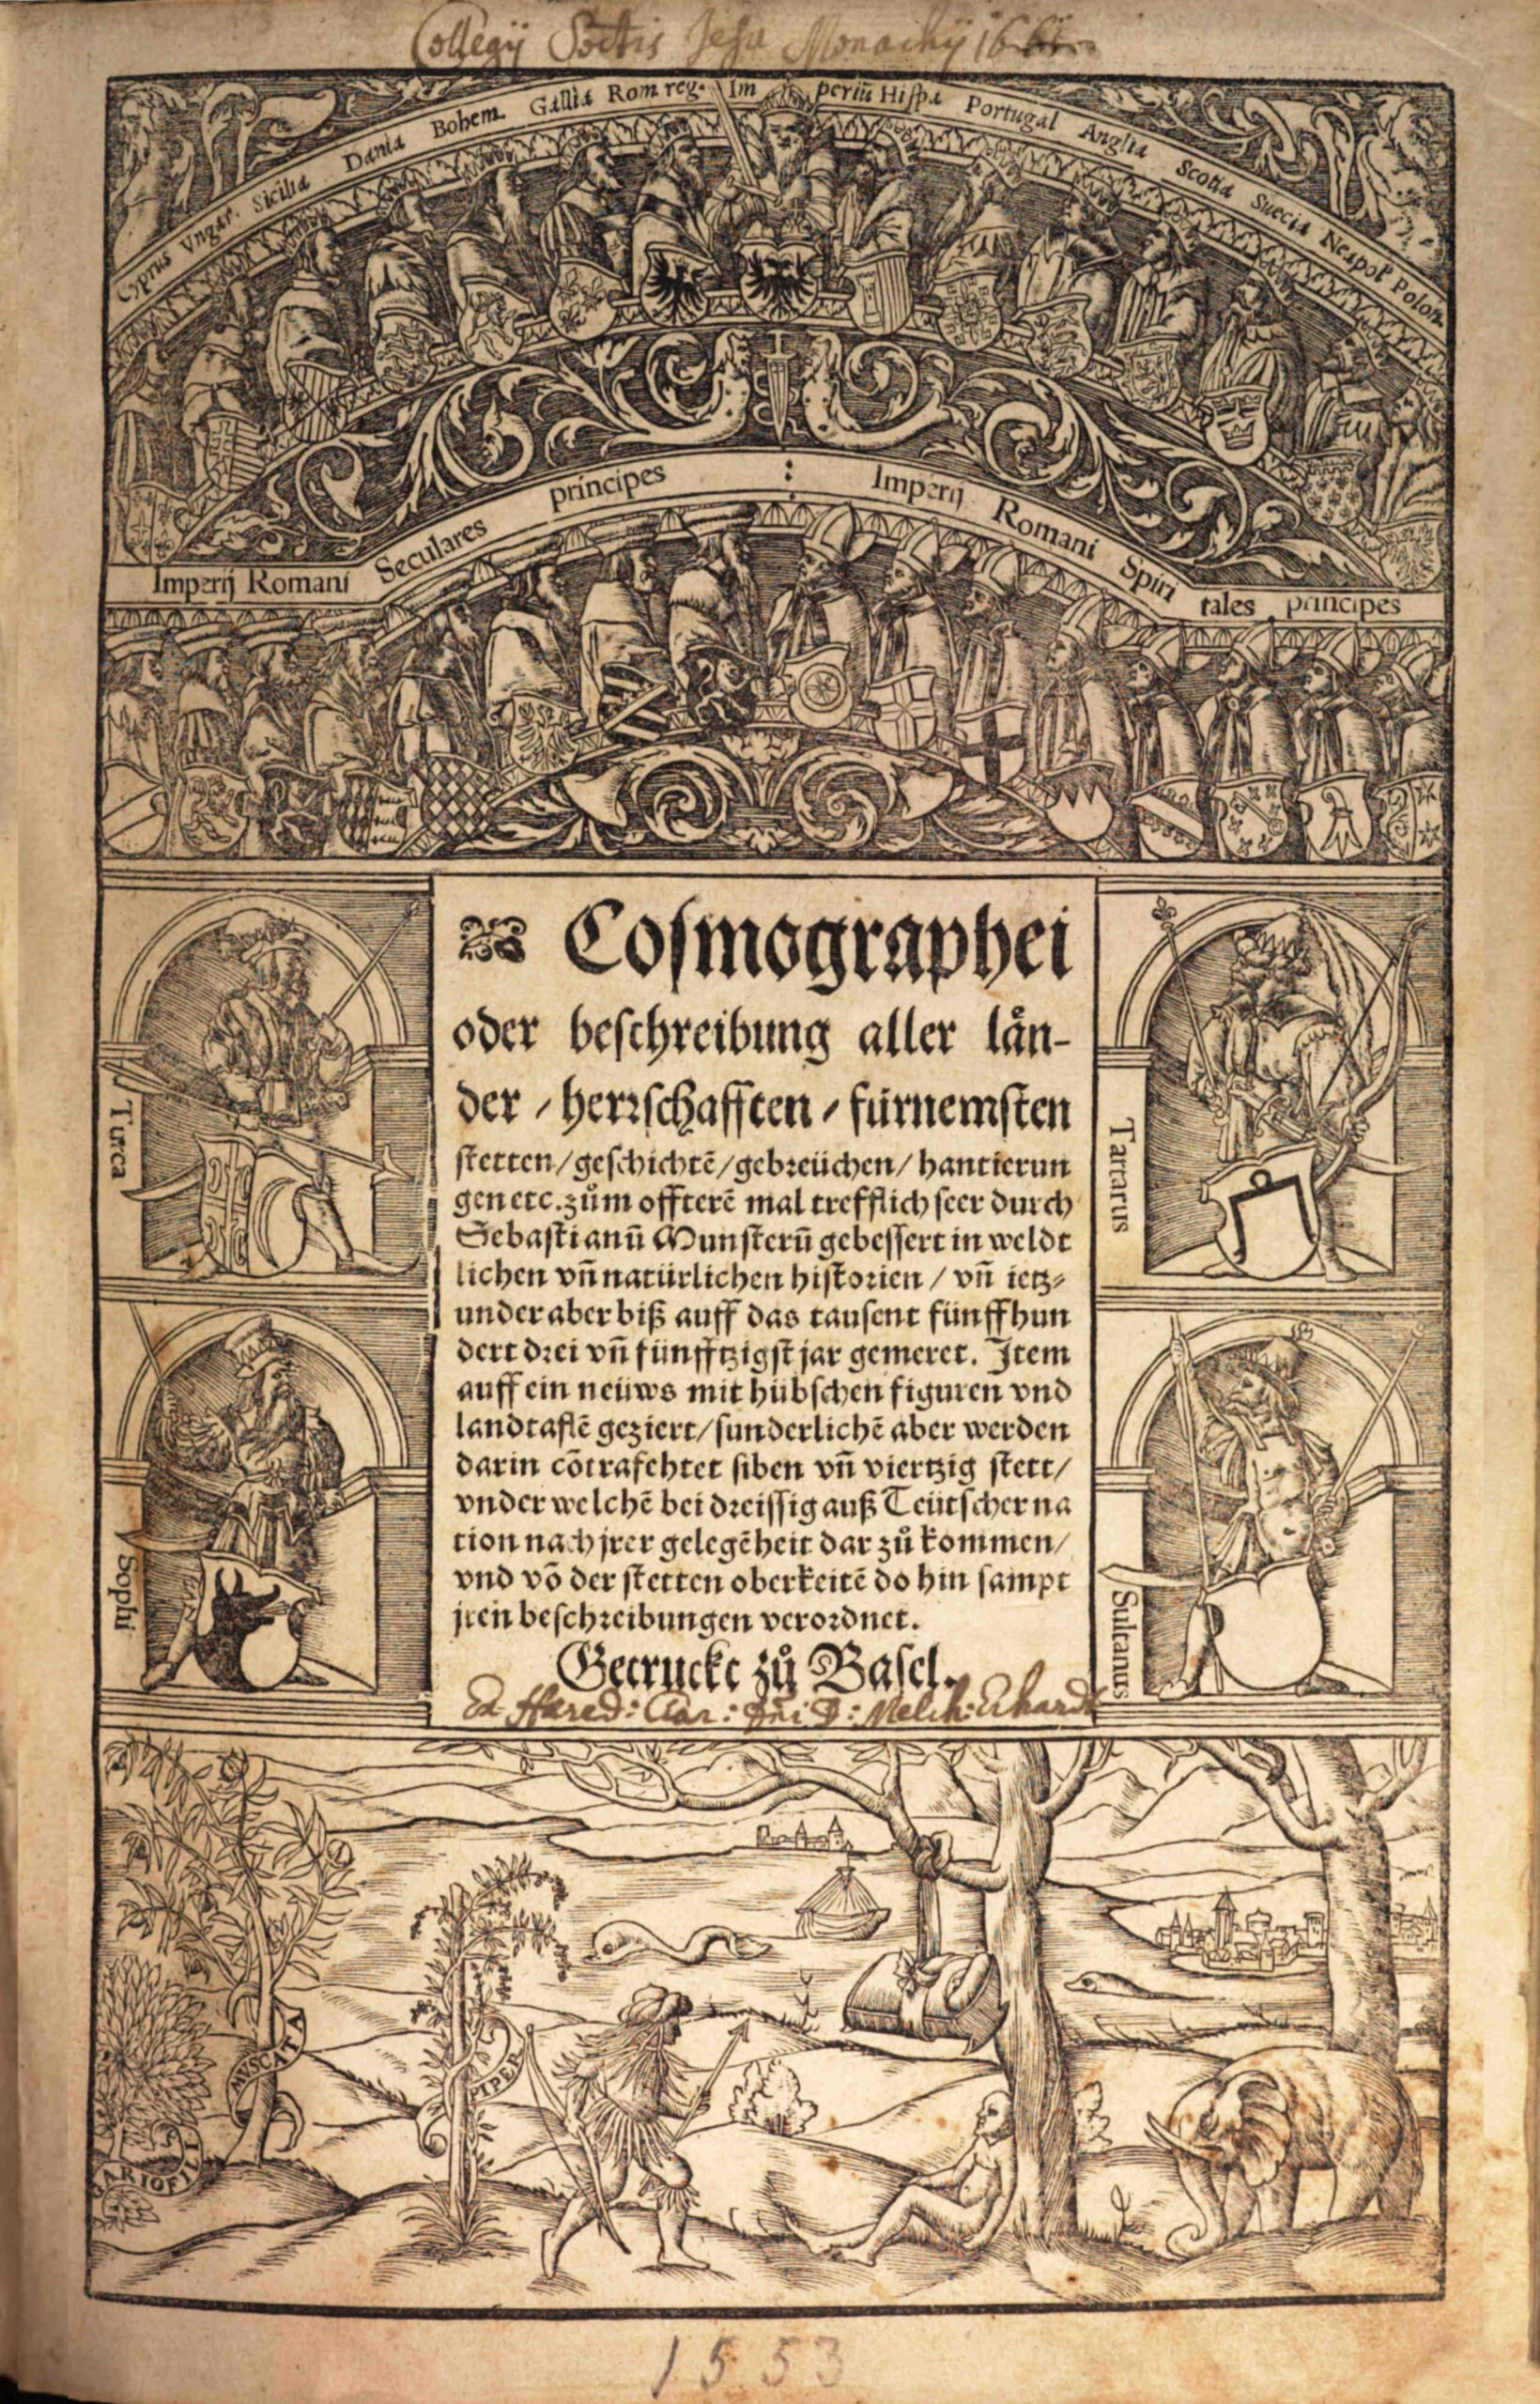 Collegij Soctis Jesu Monachij 16
Cyprus Vngar. Sicilia Dania Bohem. Gallia Rom reg. Im periũ Hispa Portugal Anglia Scotia Suecia Neapol Polon.
Imperij Romani Seculares principes : Imperij Romani Spiri tales principes
Coſmographei
oder beſchreibung aller laͤn-
der / herꝛſchafften / fürnemſten
ſtetten / geſchichtẽ / gebꝛeüchen / hantierun
gen etc. zům offterẽ mal trefflich ſeer durch
Sebaſtianũ Munſterũ gebeſſert in weldt
lichen vñ natürlichen hiſtoꝛien / vñ ietz-
under aber biß auff das tauſent fünffhun
dert dꝛei vñ fünfftzigſt jar gemeret. Item
auff ein neüws mit hübſchen figuren vnd
landtaflẽ geziert / ſunderlichẽ aber werden
darin cõtrafehtet ſiben vñ viertzig ſtett /
vnder welchẽ bei dꝛeiſſig auß Teütſcher na
tion nach jrer gelegẽheit dar zů kommen /
vnd võ der ſtetten oberkeitẽ do hin ſampt
jren beſchꝛeibungen veroꝛdnet.
Getruckt zů Baſel.
Ex Hæred: Cler: Dñi D: Melch: Erhardt
Turca
Tartarus
Sophi
Sultanus
MVSCATA
PIPER
GARIOFILI
1553